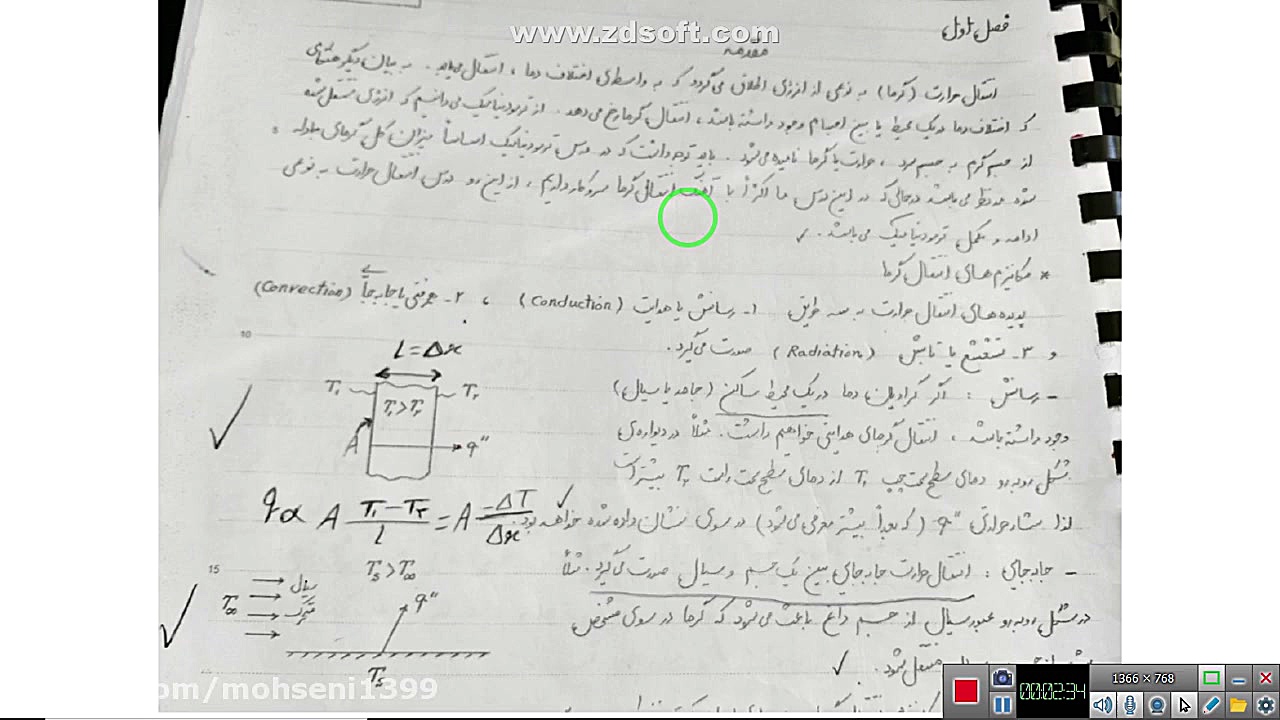 www.zdsoft.com
فصل اول
مقدمه
انتقال حرارت (گرما) به نوعی از انرژی اطلاق می‌گردد که به واسطه‌ی اختلاف دما، انتقال می‌یابد. به بیان دیگر هنگامی
که اختلاف دما در یک محیط یا بین اجسام وجود داشته باشد، انتقال گرما رخ می‌دهد. از ترمودینامیک می‌دانیم که انرژی منتقل شده
از جسم گرم به جسم سرد، حرارت یا گرما نامیده می‌شود. باید توجه داشت که در درس ترمودینامیک اساساً میزان کل گرمای مبادله
شده مد نظر می‌باشد در حالی که در این درس ما اکثراً با آهنگ انتقال گرما سر و کار داریم، از این رو درس انتقال حرارت به نوعی
ادامه و مکمل ترمودینامیک می‌باشد.
* مکانیزم های انتقال گرما
پدیده های انتقال حرارت به سه طریق ۱- رسانش یا هدایت (Conduction)، ۲- همرفتی یا جابه جایی (Convection)
و ۳- تشعشع یا تابش (Radiation) صورت می‌گیرد.
- رسانش : اگر گرادیان دما در یک محیط ساکن (جامد یا سیال)
وجود داشته باشد، انتقال گرمای هدایتی خواهیم داشت. مثلاً در دیواره‌ی
شکل روبه‌رو دمای سطح سمت چپ T₁ از دمای سطح سمت راست T₂ بیشتر است
لذا شار حرارتی q" (که بعداً بیشتر معرفی می‌شود) در سوی نشان داده شده خواهد بود.
- جابه جایی : انتقال حرارت جابه جایی بین یک جسم و سیال صورت می‌گیرد. مثلاً
در شکل روبه‌رو عبور سیال از جسم داغ باعث می‌شود که گرما در سوی مشخص
منتقل شود.
10
L=Δx
T₁ T₂
T₁>T₂
A q"
q α A T₁-T₂/L = A -ΔT/Δx
15
Ts>T∞
T∞ سیال
متحرک
q"
Ts
.com/mohseni1399
1366 × 768
00:02:34